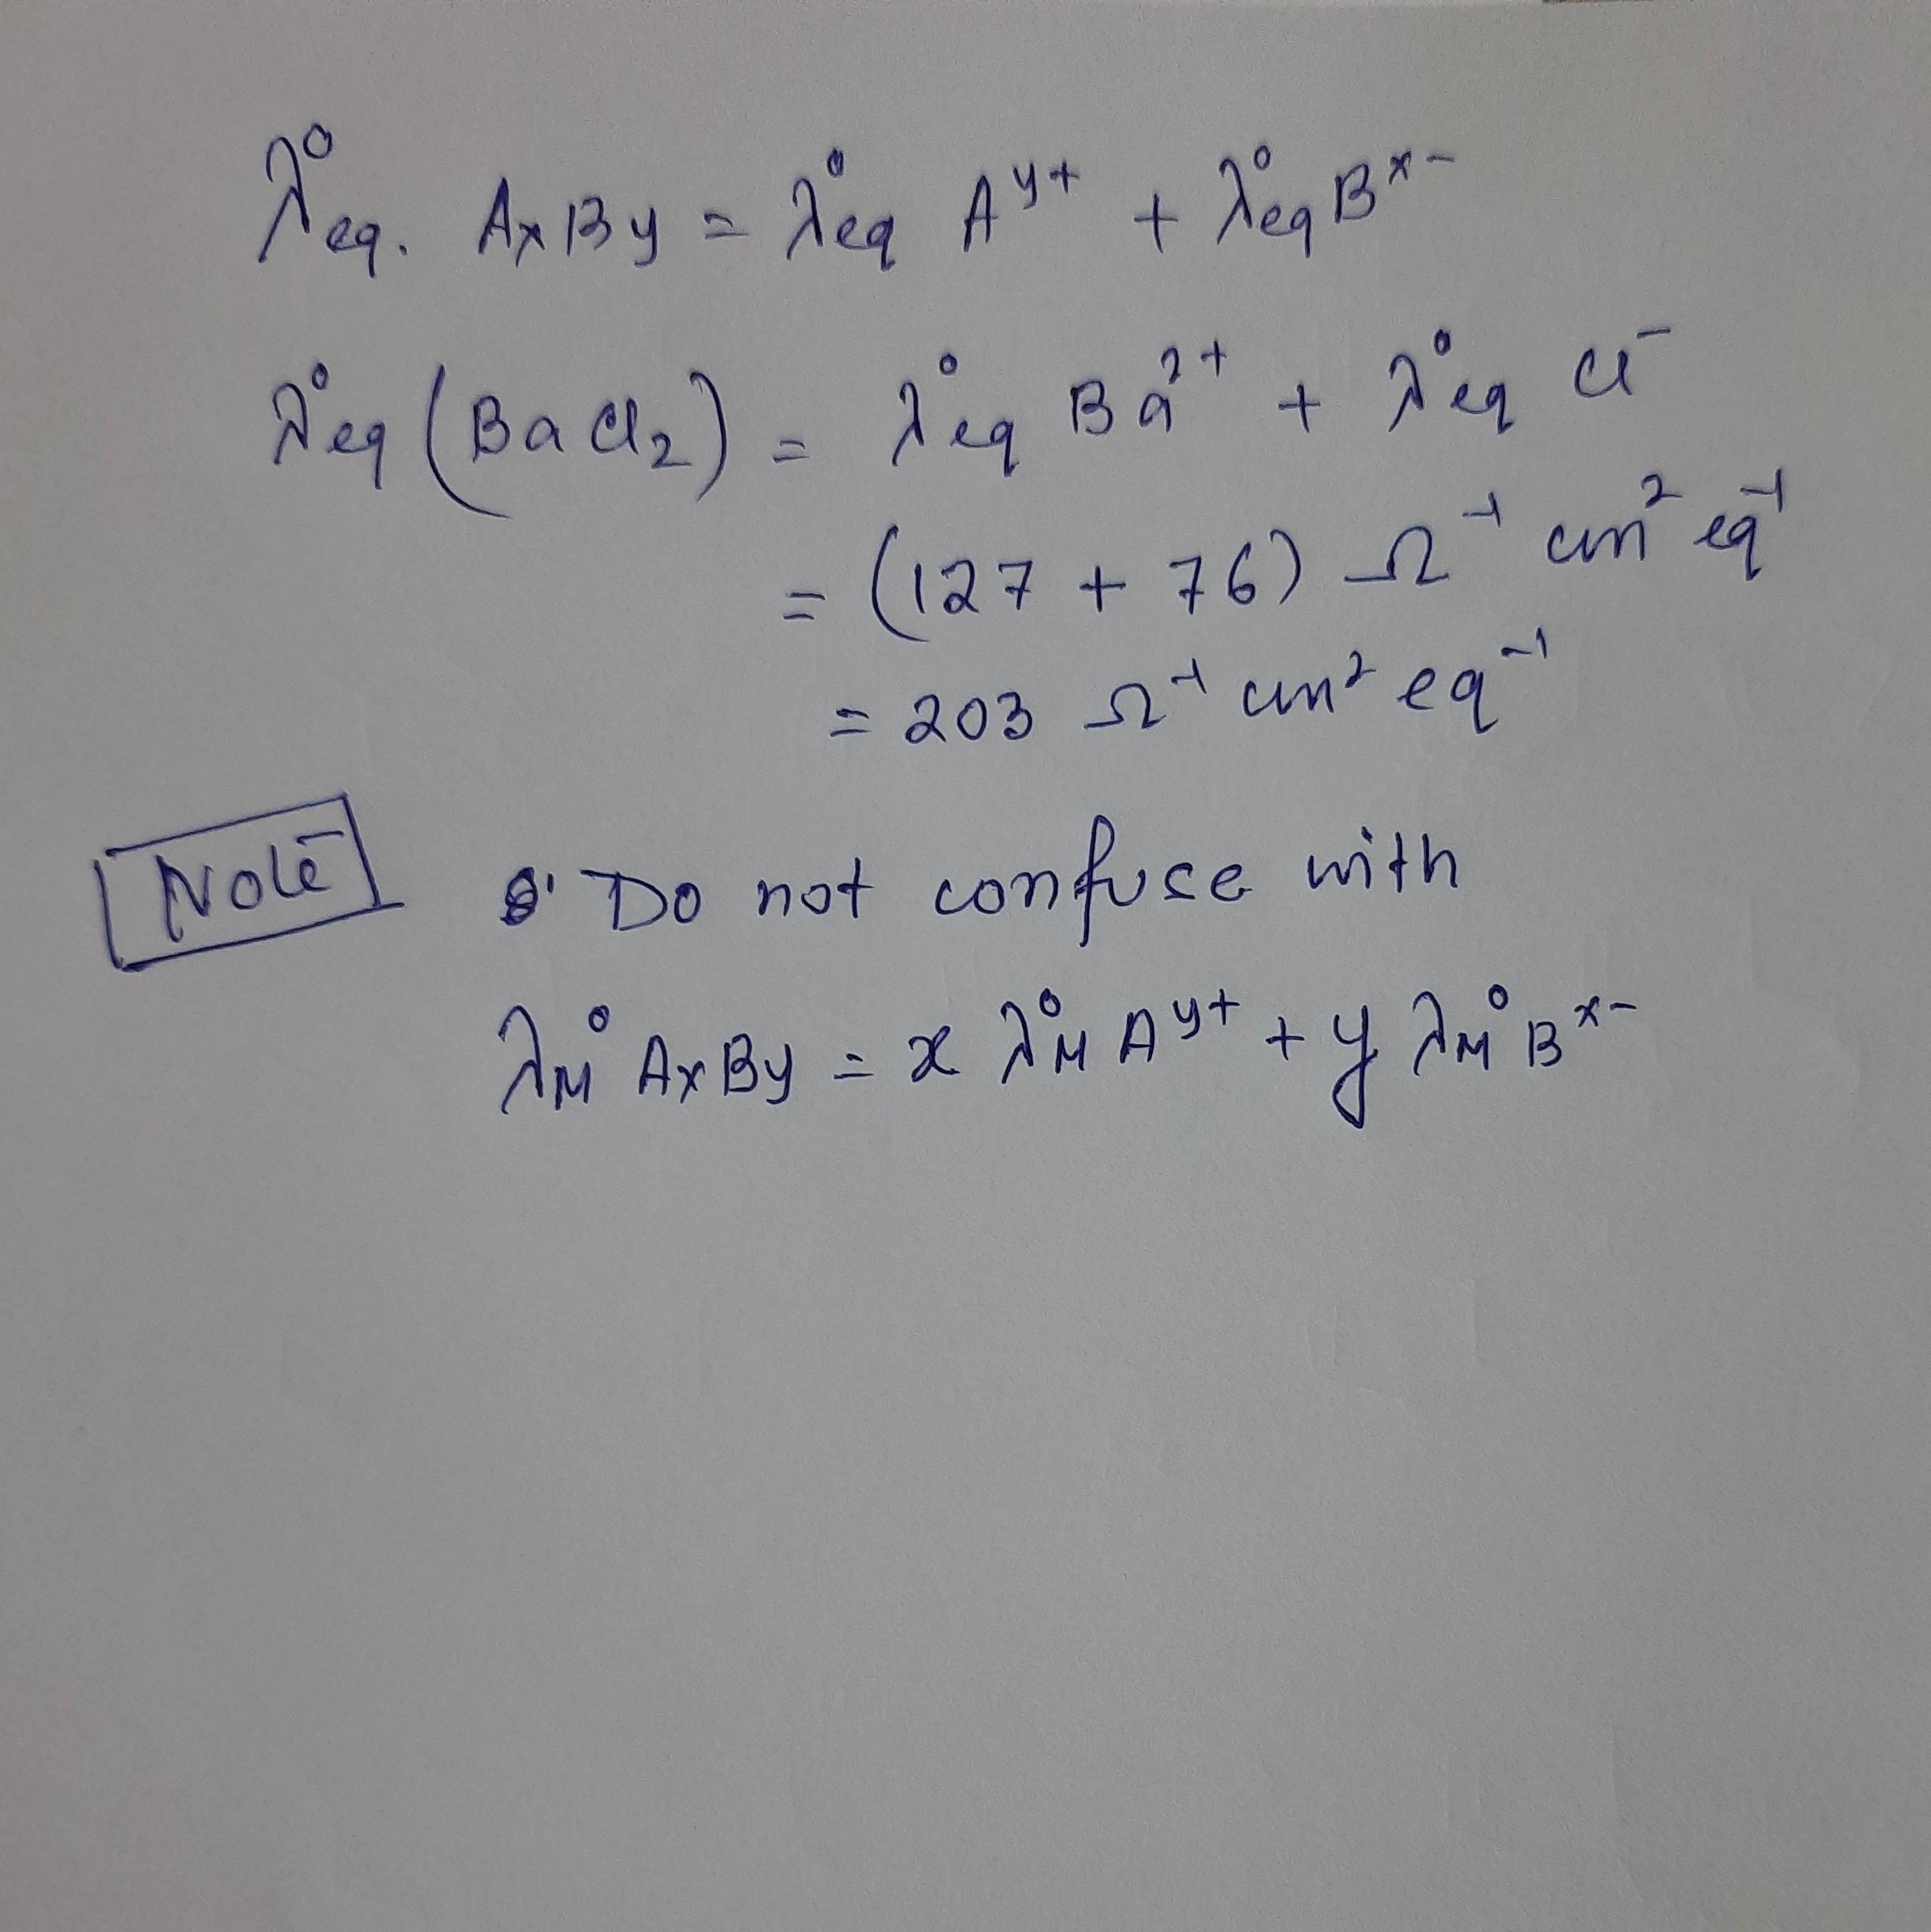 λ°eq. AxBy = λ°eq A^y+ + λ°eq B^x-
λ°eq (BaCl₂) = λ°eq Ba²⁺ + λ°eq Cl⁻
= (127 + 76) Ω⁻¹ cm² eq⁻¹
= 203 Ω⁻¹ cm² eq⁻¹
Note Do not confuse with
λ°M AxBy = x λ°M A^y+ + y λ°M B^x-